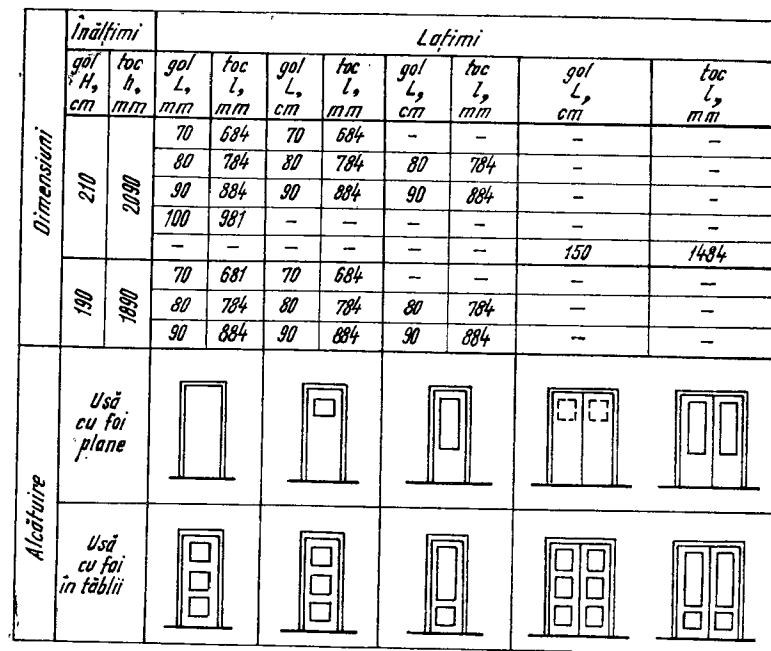 Dimensiuni
Înălțimi Lațimi
gol H, cm toc h, mm gol L, mm toc l, mm gol L, cm toc l, mm gol L, cm toc l, mm gol L, cm toc l, mm
210 2090
70 684 70 684 – – – –
80 784 80 784 80 784 – –
90 884 90 884 90 884 – –
100 981 – – – – – –
– – – – – – 150 1484
190 1890
70 681 70 684 – – – –
80 784 80 784 80 784 – –
90 884 90 884 90 884 – –
Alcătuire
Usă
cu foi
plane
Usă
cu foi
în tăblii